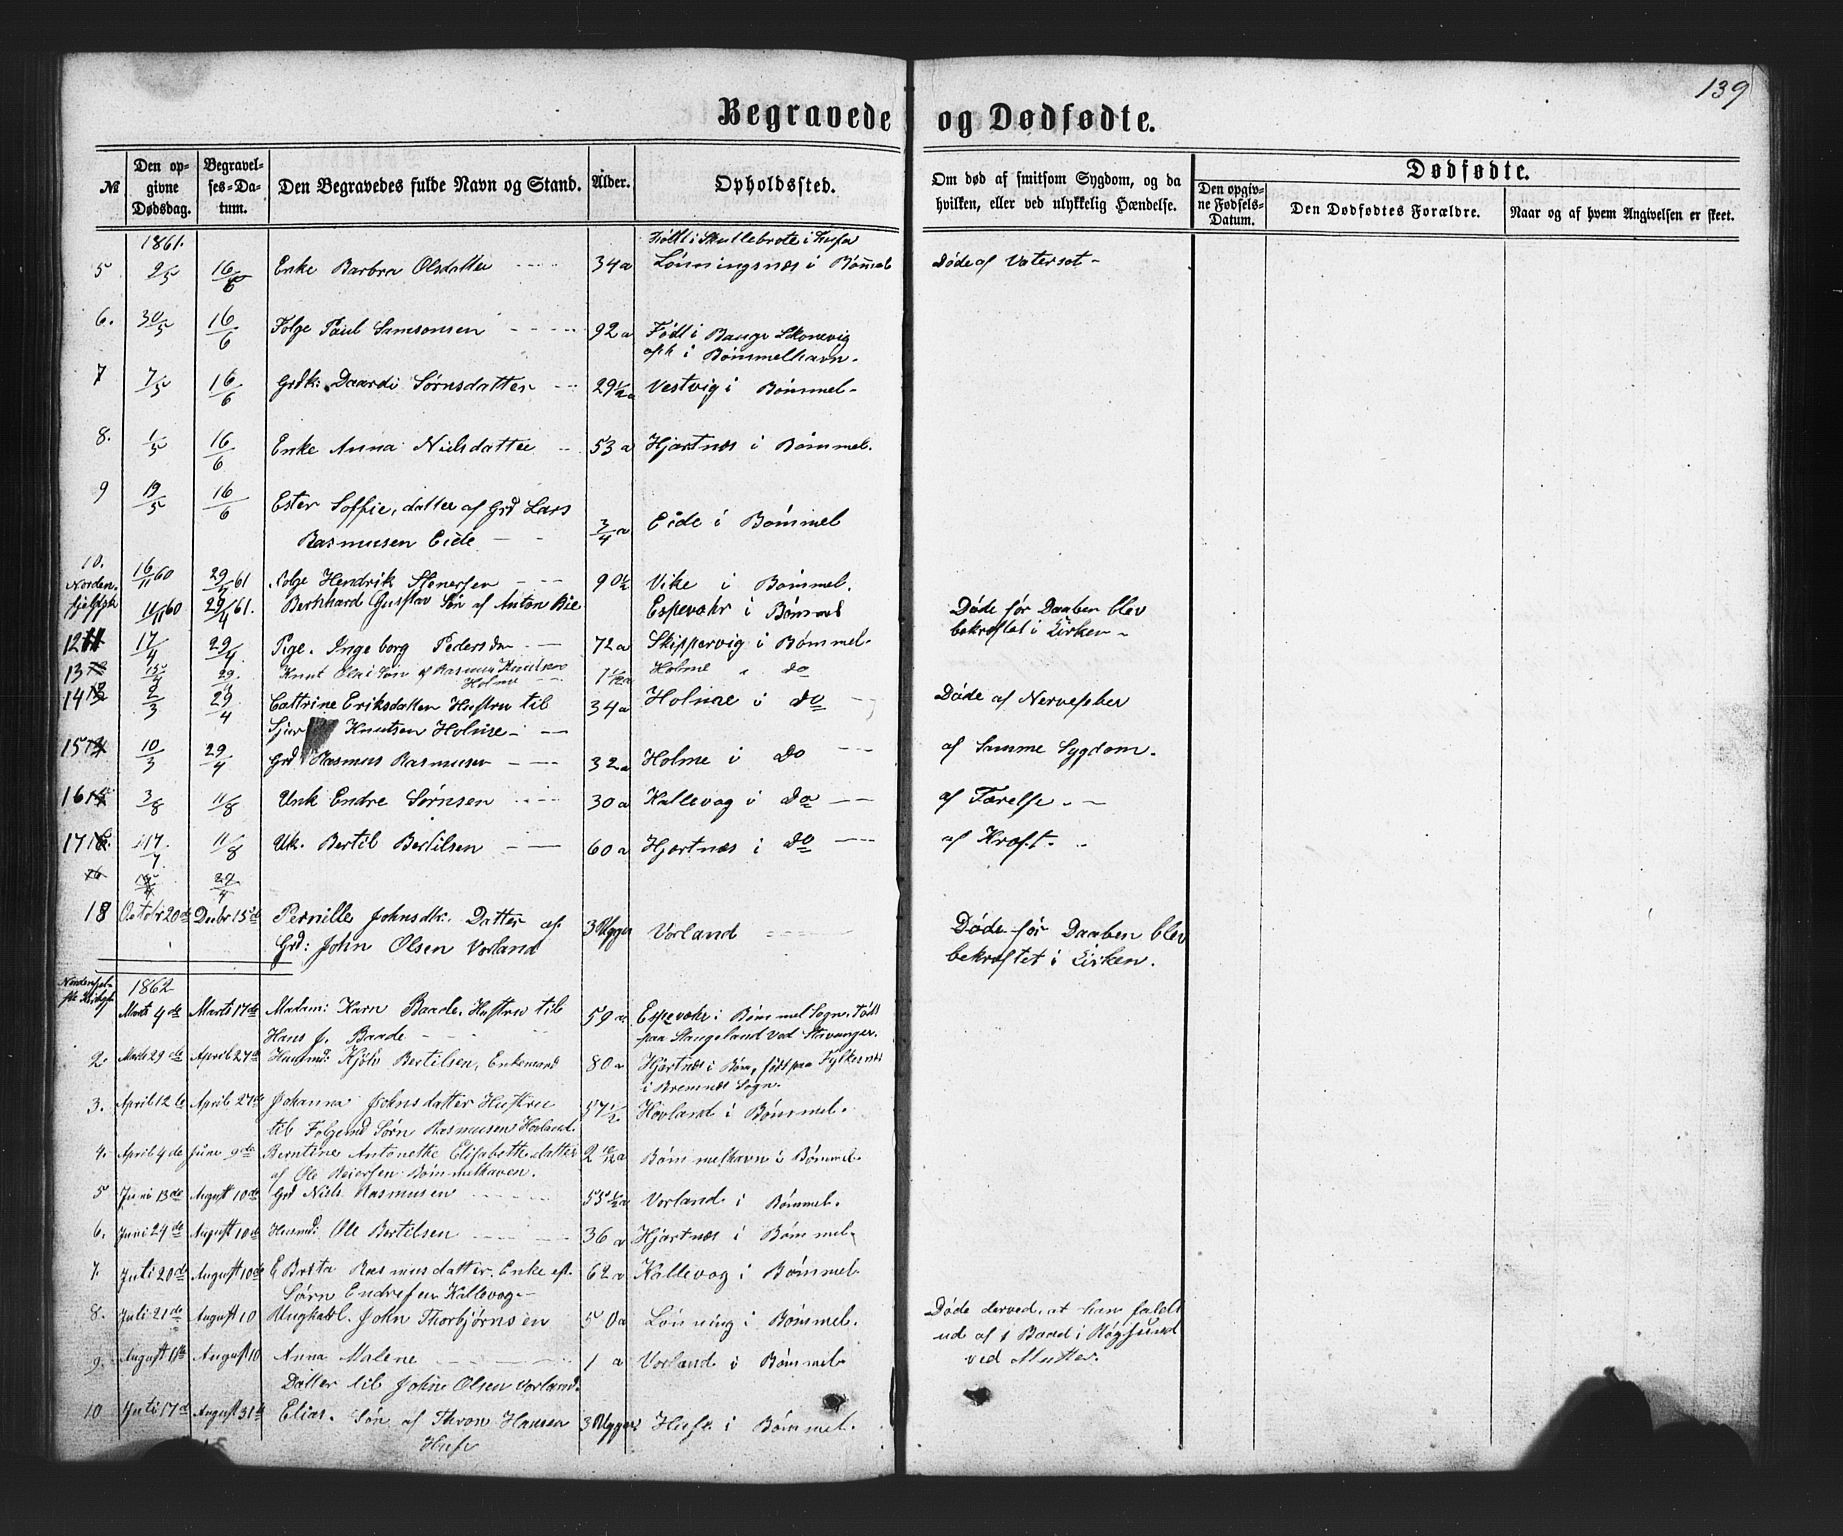 139
Begravede og Dødfødte.
№ Den opgivne Dødsdag. Begravelses-Datum. Den Begravedes fulde Navn og Stand. Alder. Opholdssted. Om død af smitsom Sygdom, og da hvilken, eller ved ulykkelig Hændelse. Dødfødte. Den opgivne Fødsels-Datum. Den Dødfødtes Forældre. Naar og af hvem Angivelsen er skeet.
1861.
5 2/5 16/6 Enke Barbra Olsdatter 34 a Født i
Lønningsnæs i Bømmel Døde af Vatersot
6. 30/5 16/6 Folge Paul Samsonsen 92 a Født i Bauge Skonevig
oph i Bømmelhavn.
7 7/5 16/6 Grdk: Daardi Sørnsdatter 29 1/2 a Vestvig i Bømmel
8. 1/5 16/6 Enke Anna Nielsdatter 53 a Hjærtnæs i Bømmel.
9 19/5 16/6 Ester Soffie, datter af Grd Lars
Rasmusen Eide 3/4 a Eide i Bømmel
10. 16/11 60 29/4 61 Folge Hendrik Stenersen 90 1/2 Vike i Bømmel.
Norden-
11/11 60 29/4 61. Bernhard Gustav Søn af Anton Bie Espevær i Bømmel Døde før Daaben blev
bekræftet i Kirken
12 17/4 29/4 Pige. Ingeborg Pedersdtr 72 a Skippervig i Bømmel
13 29 Knut Søn af Rasmus Knutsen
Holme 1 1/12 a Holme " do
14 2/3 29/4 Cattrine Eriksdatter Hustru til
Knutsen Holme 34 a Holme i do Døde af Nervefeber
15 10/3 29/4 Grd Rasmus Rasmusen 32 a Holme i do af Samme Sygdom.
16 3/8 11/8 Unk Endre Sørnsen 30 a Kallevog i do af Tærelse
17 17/7. 11/8 Uk. Bertil Bertilsen 60 a Hjærtnæs i do af Kræft.
16 29/4
18 Octobr 20de Decbr 15de Pernille Johnsdtr. Datter af
Grd: John Olsen Vorland 3 Uger Vorland Døde før Daaben blev
bekræftet i Kirken.
1862
Marts 4de Marts 17de Madam: Karn Baade, Hustru til
Hans J. Baade 59 a Espevær i Bømmel Sogn, Født
paa Stangeland ved Stavanger.
2 Marts 29de April 27de Husmd: Bertilsen, Enkemand 80 a Hjærtnæs i Bøm, født paa
i Bremnæs Sogn.
3. April 12te April 27de Johanna Johnsdatter Hustru
til Folgemd Sørn Rasmusen Hovland 57 1/2 Hovland i Bømmel.
4. April 4de Juni 9de Berntine Antonette Elisabeth datter
af Ole Reiersen Bømmelhaven. 2 a Bømmelhavn i Bømmel.
5 Juni 13de August 10de Grd Niels Rasmusen 55 1/2 a Vorland i Bømmel.
6. Juni 24de August 10de Husmd: Ole Bertilsen 36 a Hjærtnæs i Bømmel
7. Juli 20de August 10de E Brita Rasmusdatter. Enke eft.
Sørn Endresen Kallevog 62 a Kallevog i Bømmel
8. Juli 21de August 10 Ungkarl. John Thorbjørnsen 50 a Lønning i Bømmel. Døde derved, at han faldt
ud af 1 Baad i Røgsund
ved Mutter.
9. August 1ste August 10 Anna Malene
Datter til John Olsen Vorland. 1 a Vorland i Bømmel
10 Juli 17de August 31te Elias. Søn af Thron Hansen
Huse 3 Uger Huse i Bømmel.